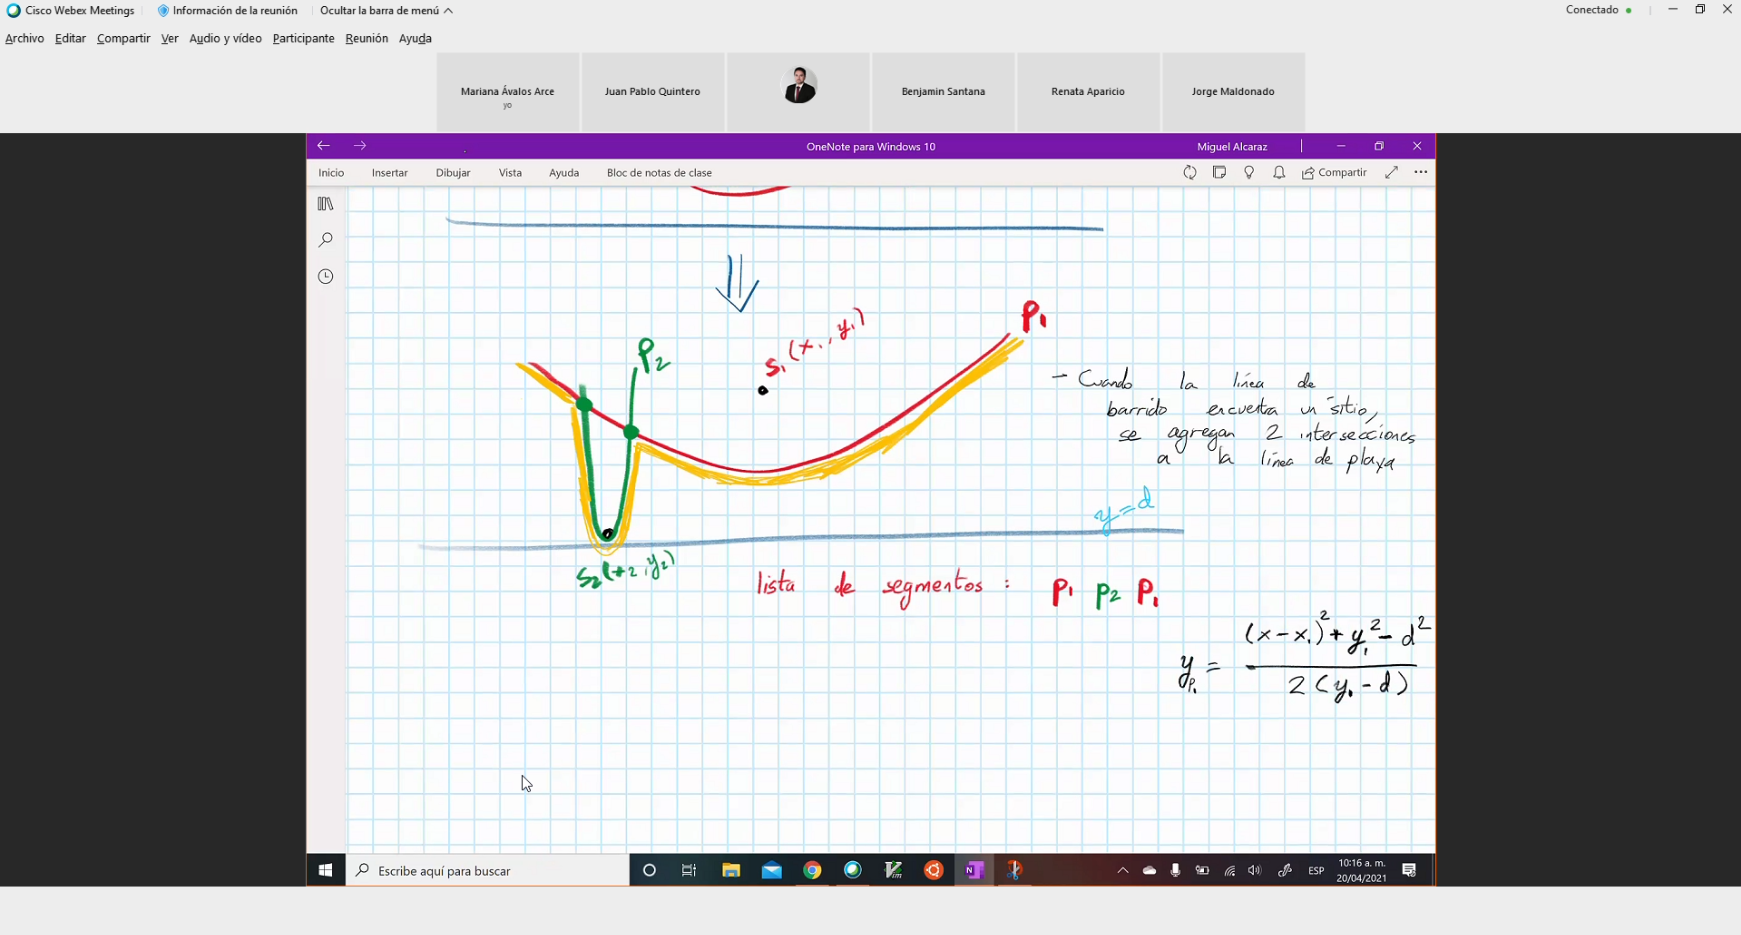 Cisco Webex Meetings
Información de la reunión
Ocultar la barra de menú
Conectado
Archivo Editar Compartir Ver Audio y vídeo Participante Reunión Ayuda
Mariana Ávalos Arce
yo
Juan Pablo Quintero
Benjamin Santana
Renata Aparicio
Jorge Maldonado
OneNote para Windows 10
Miguel Alcaraz
Inicio Insertar Dibujar Vista Ayuda Bloc de notas de clase
Compartir
P1
S1 (x1, y1)
P2
- Cuando la línea de
barrido encuentra un sitio,
se agregan 2 intersecciones
a la línea de playa
y=d
S2(x2, y2)
lista de segmentos : P1 P2 P1
(x-x1)² + y1² - d²
yP1 =
2 (y1 - d)
Escribe aquí para buscar
Vim
N
ESP
10:16 a. m.
20/04/2021